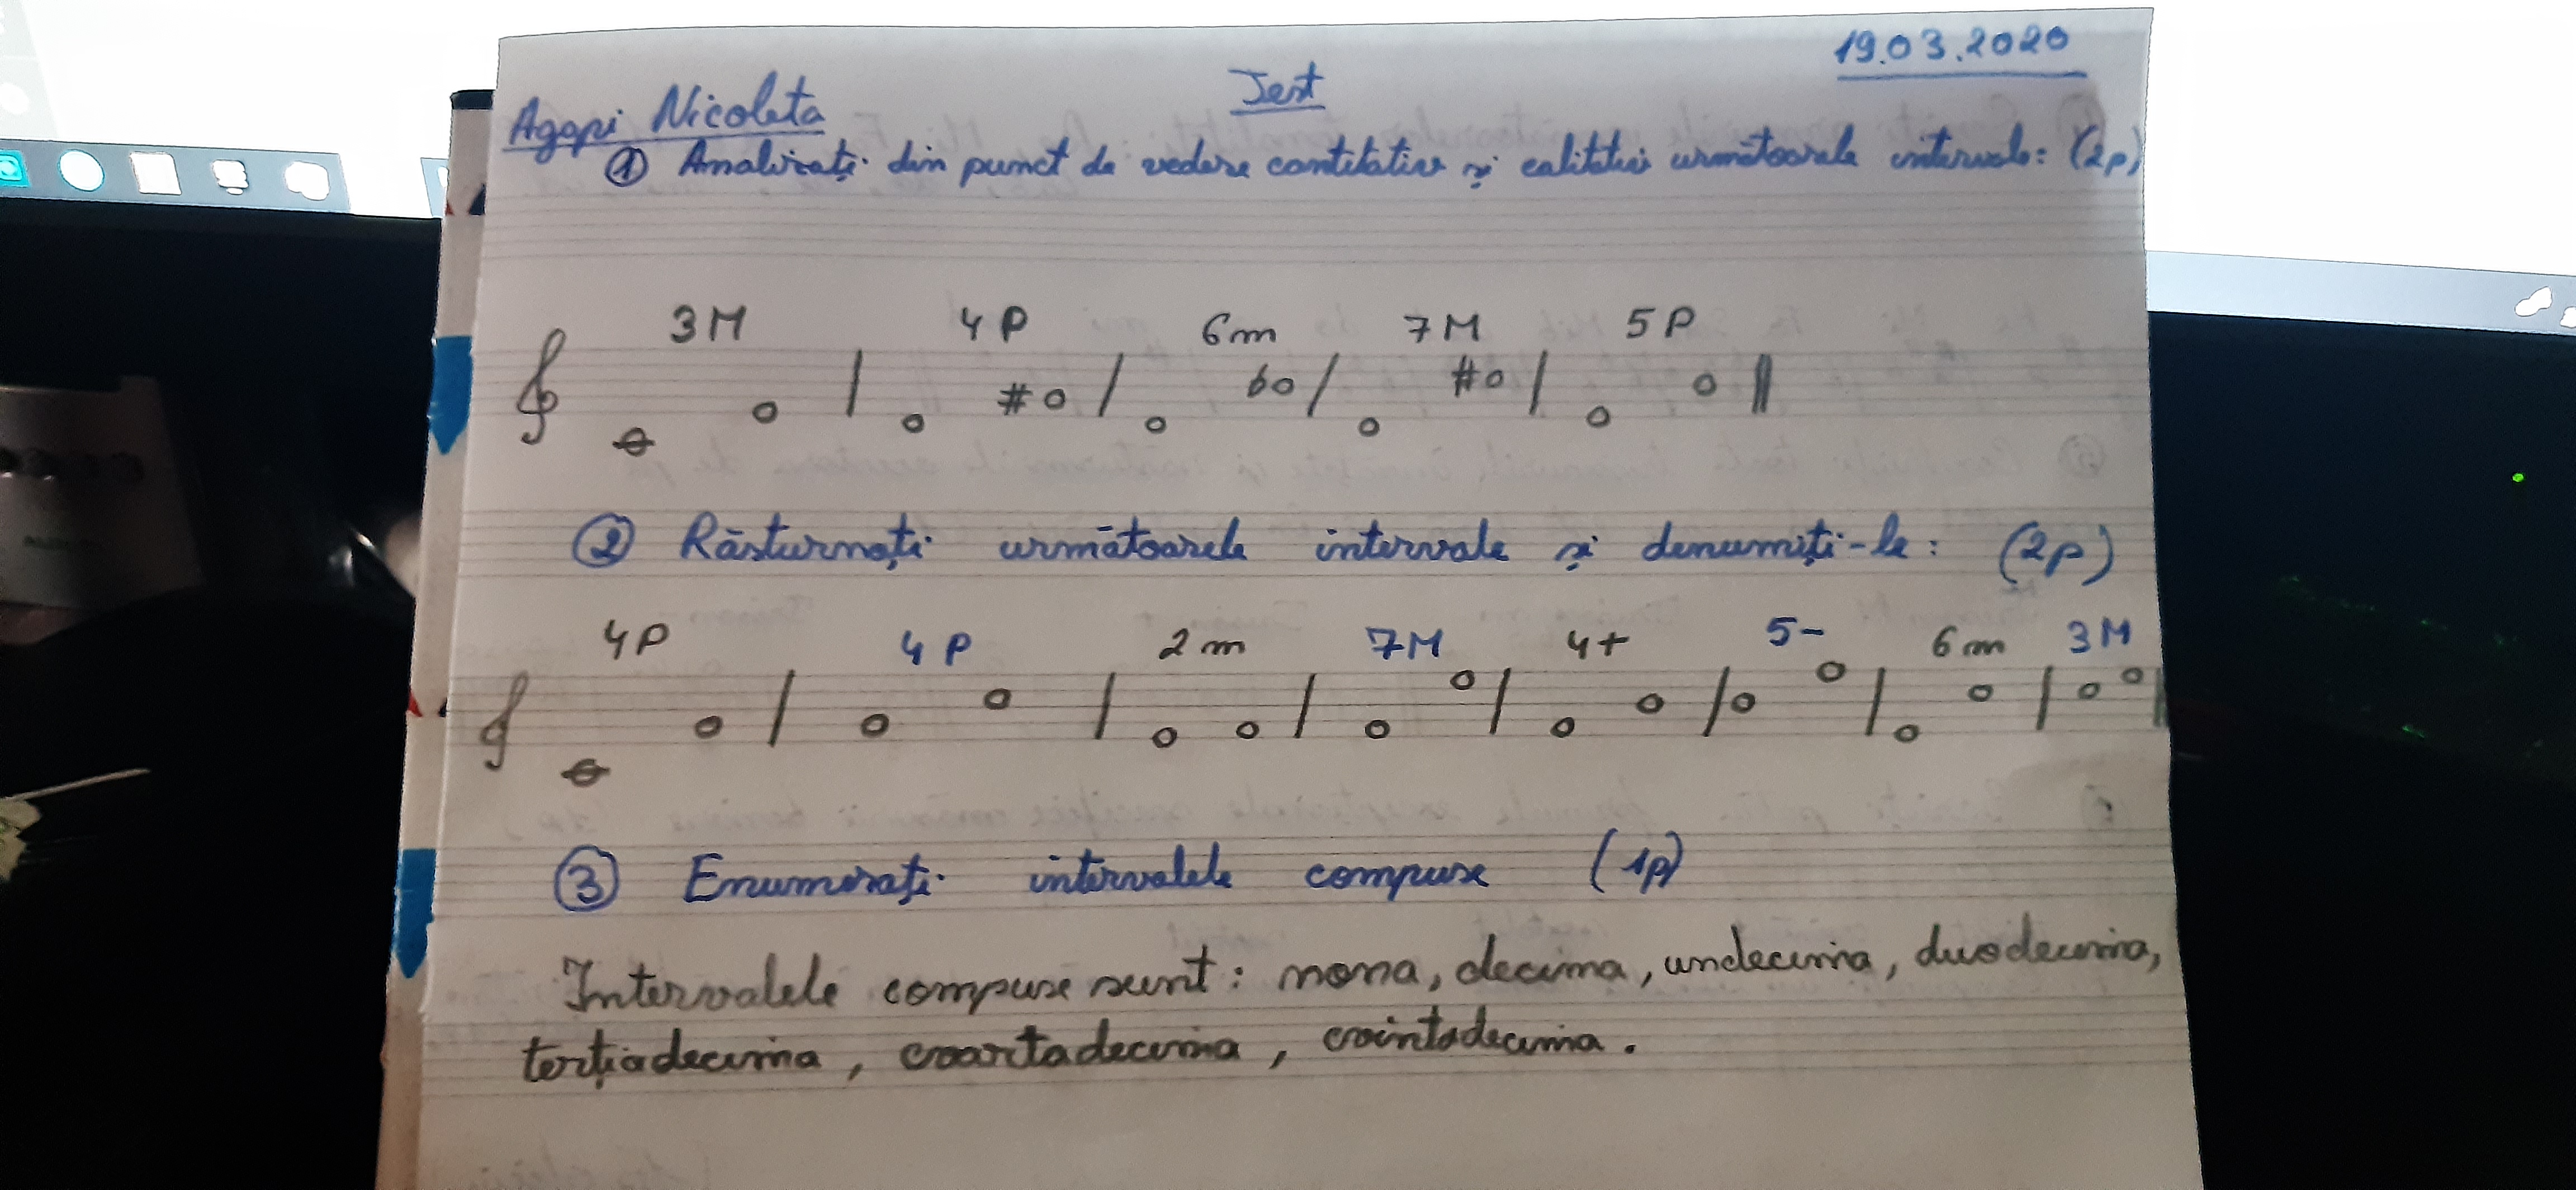 19.03.2020
Test
Agapi Nicoleta
① Analizați din punct de vedere cantitativ și calitativ următoarele intervale: (2p)
3M 4P 6m 7M 5P
② Răsturnați următoarele intervale și denumiți-le: (2p)
4P 4P 2m 7M 4+ 5- 6m 3M
③ Enumerați intervalele compuse (1p)
Intervalele compuse sunt: nona, decima, undecima, duodecima,
terțiadecima, cvartadecima, cvintadecima.